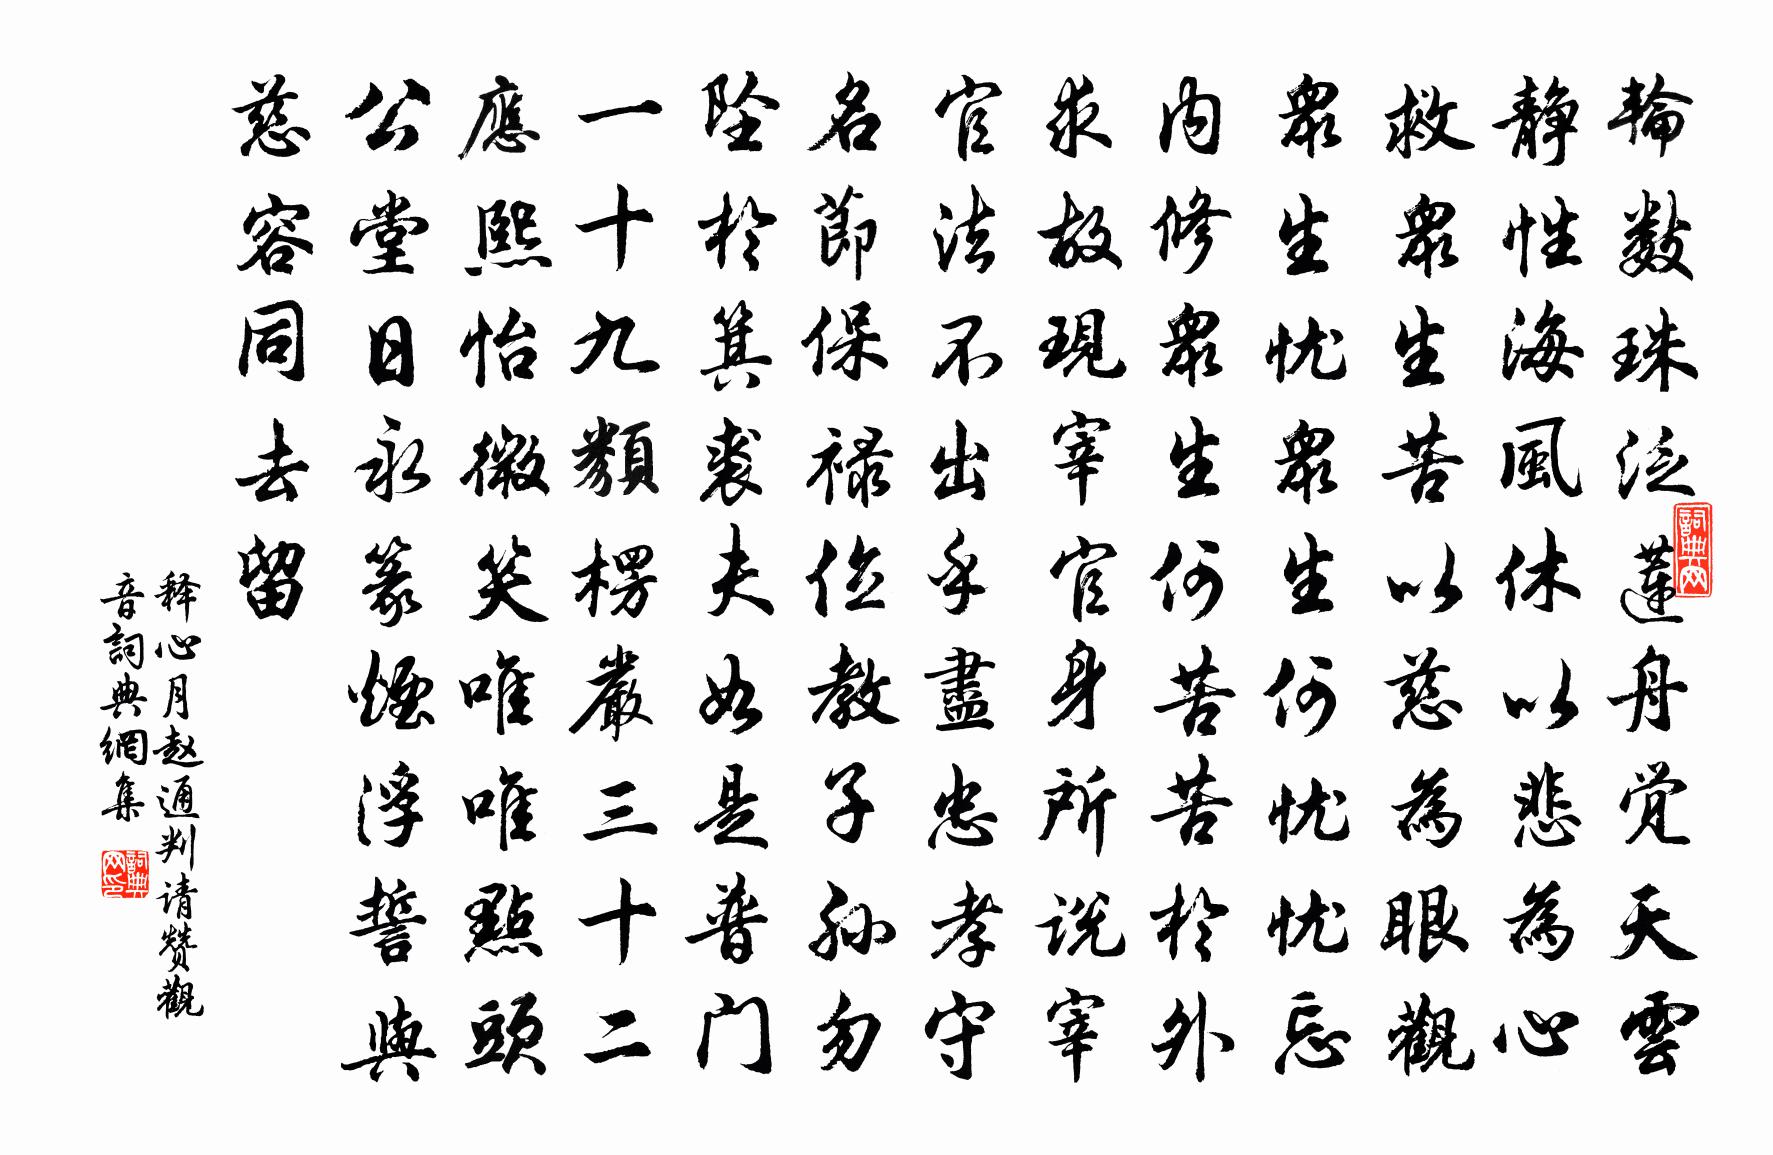 輪數珠泛蓮舟觉天雲
静性海風休以悲為心
救衆生苦以慈為眼觀
衆生忧衆生何忧忧忘
内修衆生何苦苦於外
求故現宰官身所说宰
官法不出乎盡忠孝守
名節保禄位教子孙勿
坠於箕裘夫如是普门
一十九類楞嚴三十二
應熙怡微笑唯唯點頭
公堂日永篆煙浮誓與
慈容同去留
释心月赵通判请赞觀
音詞典網集
詞典网
詞典网印